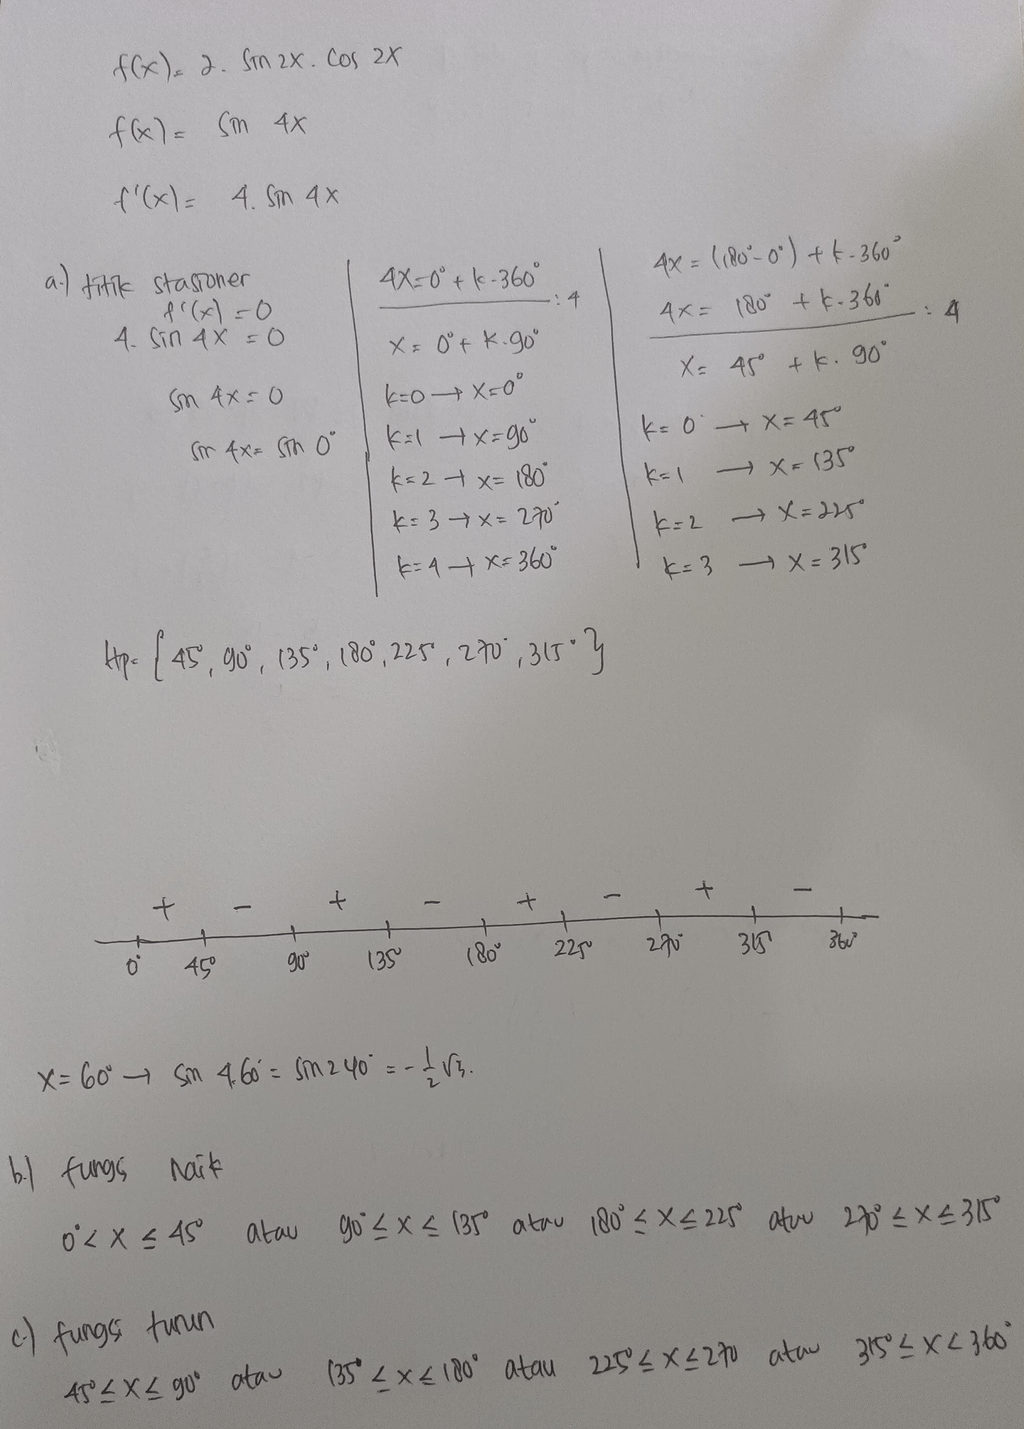 f(x) = 2. sin 2x. cos 2x
f(x) = sin 4x
f'(x) = 4. sin 4x
a.) titik stasioner
f'(x) = 0
4. sin 4x = 0
sin 4x = 0
sin 4x = sin 0°
4x = 0° + k.360°
: 4
x = 0° + k.90°
k=0 → x=0°
k=1 → x=90°
k=2 → x=180°
k=3 → x=270°
k=4 → x=360°
4x = (180°-0°) + k.360°
4x = 180° + k.360° : 4
x = 45° + k. 90°
k=0 → x=45°
k=1 → x=135°
k=2 → x=225°
k=3 → x=315°
Hp = {45°, 90°, 135°, 180°, 225°, 270°, 315°}
+ - + - + - + -
0° 45° 90° 135° 180° 225° 270° 315° 360°
x=60° → sin 4.60° = sin 240° = -1/2 √3.
b.) fungsi naik
0° < x ≤ 45° atau 90° ≤ x ≤ 135° atau 180° ≤ x ≤ 225° atau 270° ≤ x ≤ 315°
c.) fungsi turun
45° ≤ x ≤ 90° atau 135° ≤ x ≤ 180° atau 225° ≤ x ≤ 270 atau 315° ≤ x < 360°